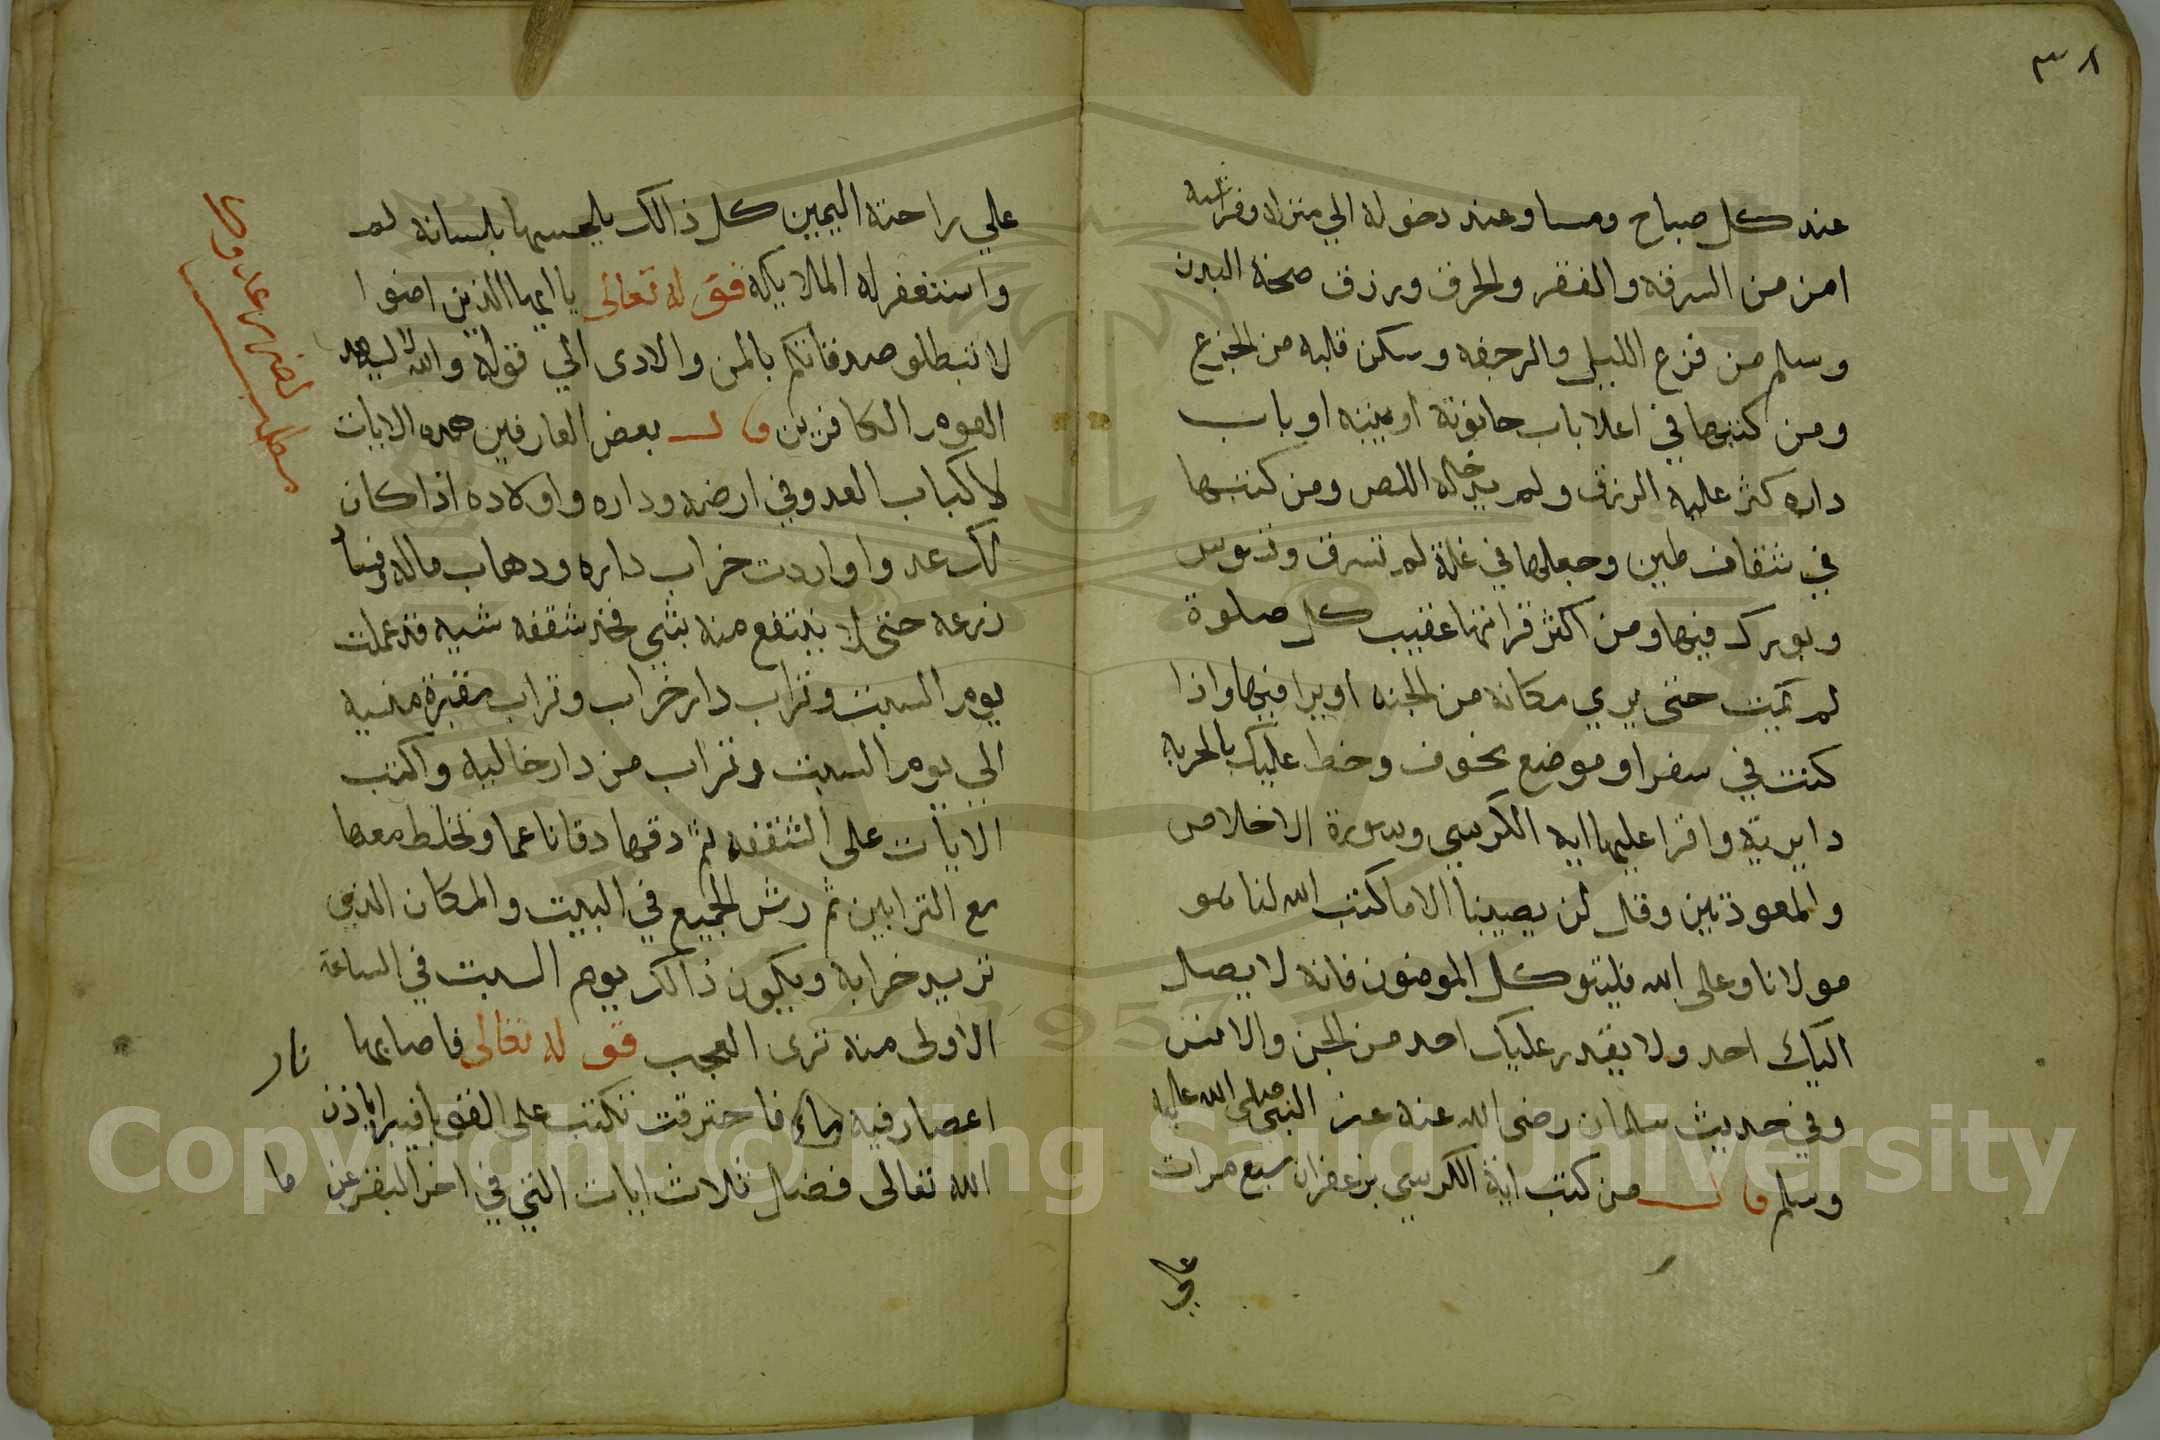 ٣٨
عند كل صباح ومسا وعند دخوله الي منزله وفراشه
امن من السرقه والفقر والحرق ورزق صحة البدن
وسلم من فزع الليل والرجفه وسكن قلبه من الجزع
ومن كتبها في اعلا باب حانوته او بيته او باب
داره كثر عليه الرزق ولم يدخله اللص ومن كتبها
في شقاف طين وجعلها في غلة لم تسرق وتسوس
وبورك فيها ومن اكثر قرانها عقيب كل صلوة
لم يميت حتى يري مكانه من الجنه او يرا فيها واذا
كنت في سفر او موضع مخوف وخط عليك بالحربه
دايرية واقرا عليها ايه الكرسي وسورة الاخلاص
والمعوذتين وقل لن يصيبنا الا ما كتب الله لنا هو
مولانا وعلى الله فليتوكل المومنون فانه لا يصل
اليك احد ولا يقدر عليك احد من الجن والانس
وفي حديث سلمان رضى الله عنه عن النبى صلى الله عليه
وسلم قال من كتب اية الكرسي بزعفران سبع مرات
علي
علي راحته اليمين كل ذالك يلحسها بلسانه لم
واستغفر له الملايكة فقوله تعالى يا ايها الذين امنوا
لا تبطلو صدقاتكم بالمن والادى الي قوله والله لا يهد
القوم الكافرين قال بعض العارفين هده الايات
لاكباب العدو في ارضه وداره واولاده اذا كان
لك عدوا واردت خراب داره ودهاب ماله وفسا
زرعه حتى لا ينتفع منه بشي فخد شقفه شيه قد عملت
يوم السبت وتراب دار خراب وتراب مقبرة منسيه
الي يوم السبت وتراب من دار خاليه واكتب
الايات على الشقفه ثم دقها دقا ناعما وتخلط معها
مع الترابين ثم رش الجميع في البيت والمكان الذي
تريد خرابه ويكون ذالك يوم السبت في الساعة
الاولى منه ترى العجب قوله تعالى فاصابها
اعصار فيه نار فاحترقت تكتب على القوبا فيبرا باذن
الله تعالى فضل ثلاث ايات التي في اخر البقر عن
نار
ما